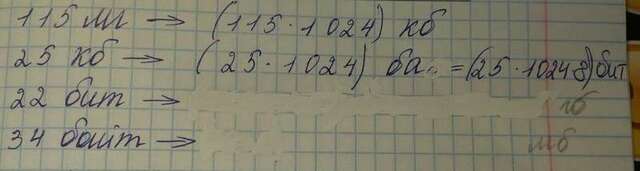 115 мг → (115·1024) кб
25 кб → (25·1024) ба = (25·1024 8) бит
22 бит → гб
34 байт → мб